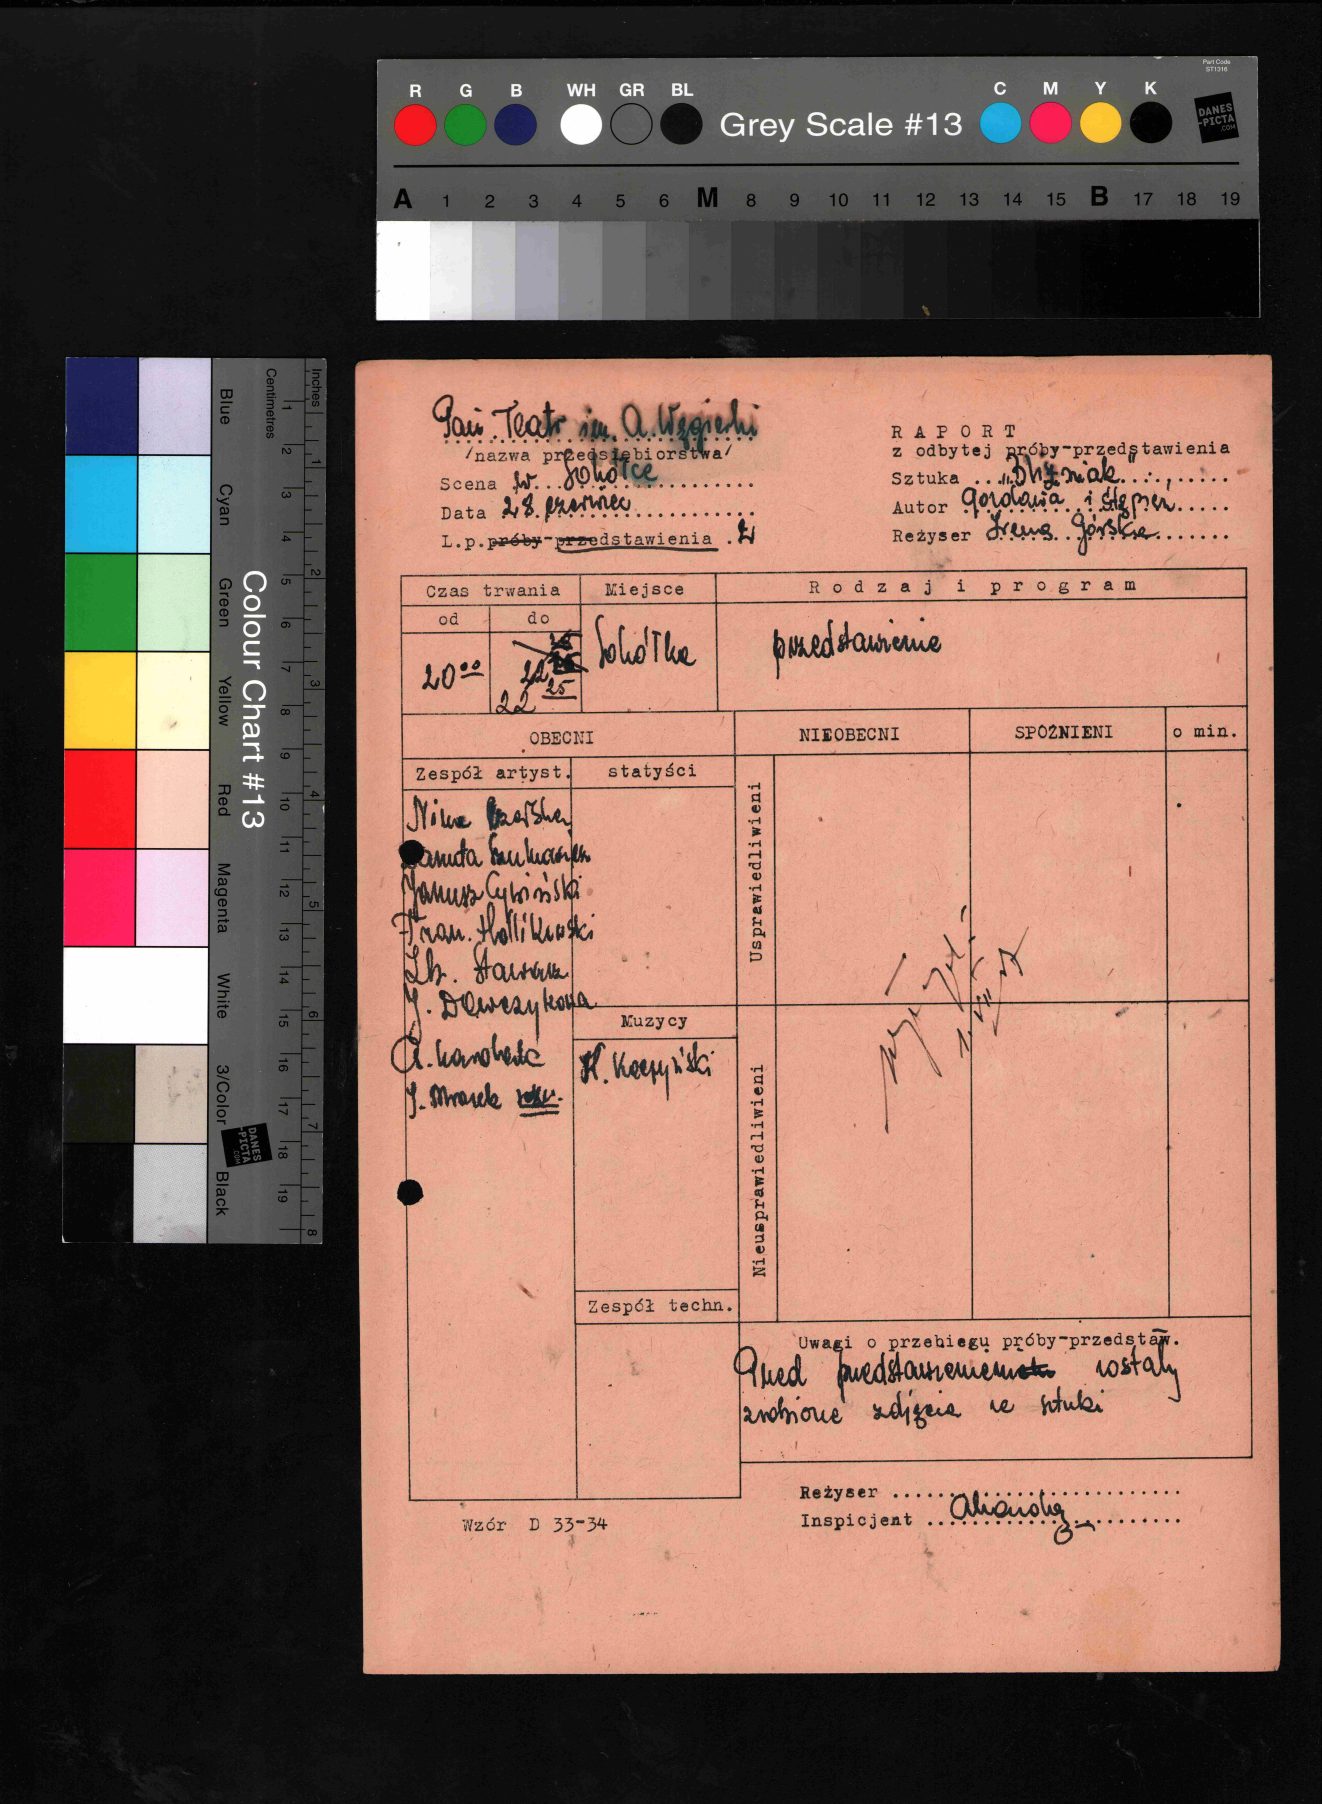 Part Code
ST1316
R G B WH GR BL Grey Scale #13 C M Y K
DANES
-PICTA
.COM
A 1 2 3 4 5 6 M 8 9 10 11 12 13 14 15 B 17 18 19
Colour Chart #13
Blue Cyan Green Yellow Red Magenta White 3/Color Black
Centimetres 1 2 3 4 5 6 7 8 9 10 11 12 13 14 15 16 17 18 19
Inches 1 2 3 4 5 6 7 8
DANES
-PICTA
.COM
Pań. Teatr im. A. Węgierki
/nazwa przedsiębiorstwa/
Scena w Sokółce
Data 28 czerwiec
L.p.próby-przedstawienia
RAPORT
z odbytej próby-przedstawienia
Sztuka "Bliźniak"
Autor Gozdawa i Stępień
Reżyser Irena Górska
Czas trwania Miejsce Rodzaj i program
od do
20 00 22 25 Sokółka przedstawienie
22 25
OBECNI NIEOBECNI SPÓŹNIENI o min.
Zespół artyst. statyści
Usprawiedliwieni
Nina Czerska
Danuta
Janusz Cywiński
Fran.
Zb. Stawarz
J. Dawczykowa
A.
J. Mrozek
Muzycy
K.
Nieusprawiedliwieni
1. VII
Zespół techn.
Uwagi o przebiegu próby-przedstaw.
Przed przedstawieniem zostały
zrobione zdjęcia ze sztuki
Reżyser
Inspicjent
Wzór D 33-34